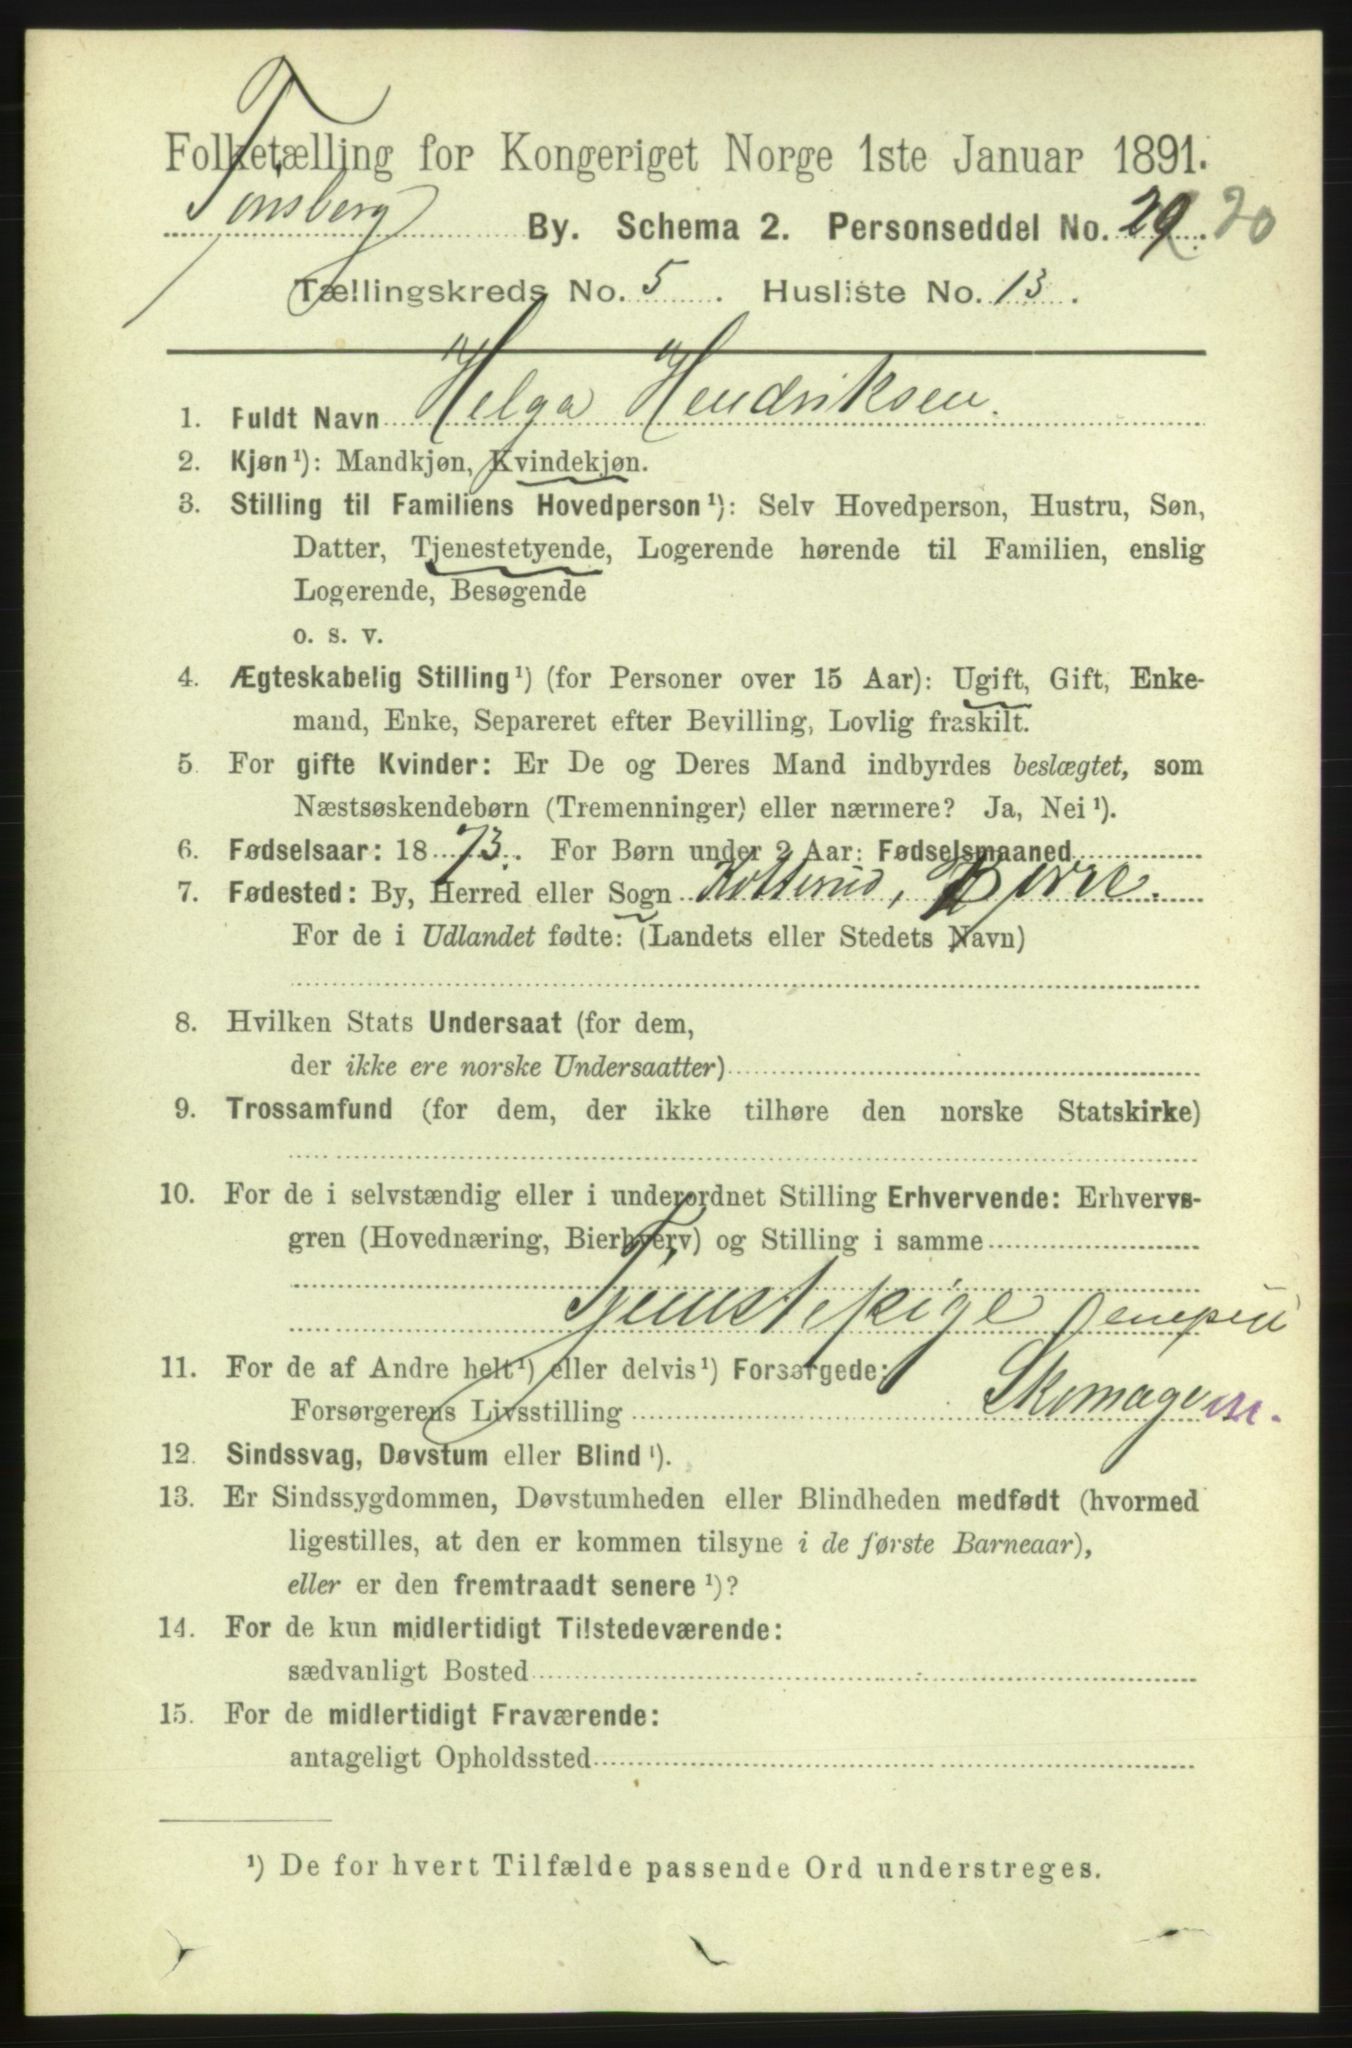 Folketælling for Kongeriget Norge 1ste Januar 1891.
Tønsberg By. Schema 2. Personseddel No. 29. 20
Tællingskreds No. 5. Husliste No. 13.
1. Fuldt Navn Helga Hendriksen.
2. Kjøn¹): Mandkjøn, Kvindekjøn.
3. Stilling til Familiens Hovedperson¹): Selv Hovedperson, Hustru, Søn,
Datter, Tjenestetyende, Logerende hørende til Familien, enslig
Logerende, Besøgende
o. s. v.
4. Ægteskabelig Stilling¹) (for Personer over 15 Aar): Ugift, Gift, Enke-
mand, Enke, Separeret efter Bevilling, Lovlig fraskilt.
5. For gifte Kvinder: Er De og Deres Mand indbyrdes beslægtet, som
Næstsøskendebørn (Tremenninger) eller nærmere? Ja, Nei¹).
6. Fødselsaar: 1873. For Børn under 2 Aar: Fødselsmaaned
7. Fødested: By, Herred eller Sogn , Borre.
For de i Udlandet fødte: (Landets eller Stedets Navn)
8. Hvilken Stats Undersaat (for dem,
der ikke ere norske Undersaatter)
9. Trossamfund (for dem, der ikke tilhøre den norske Statskirke)
10. For de i selvstændig eller i underordnet Stilling Erhvervende: Erhvervs-
gren (Hovednæring, Bierhverv) og Stilling i samme
Tjenstepige
11. For de af Andre helt¹) eller delvis¹) Forsørgede:
Forsørgerens Livsstilling
12. Sindssvag, Døvstum eller Blind¹).
13. Er Sindssygdommen, Døvstumheden eller Blindheden medfødt (hvormed
ligestilles, at den er kommen tilsyne i de første Barneaar),
eller er den fremtraadt senere¹)?
14. For de kun midlertidigt Tilstedeværende:
sædvanligt Bosted
15. For de midlertidigt Fraværende:
antageligt Opholdssted
¹) De for hvert Tilfælde passende Ord understreges.